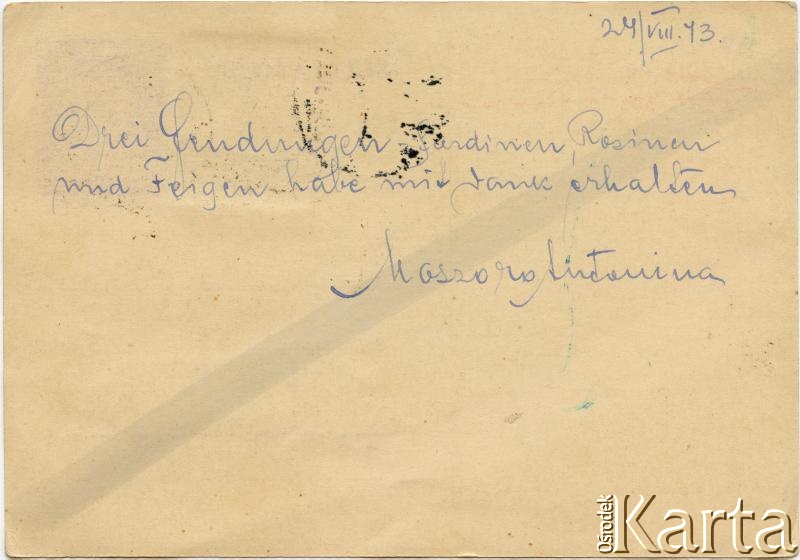 24/VIII.43.
Drei Sendungen Sardinen, Rosinen
und Feigen habe mit Dank erhalten
Moszoro Antonina
Ośrodek Karta